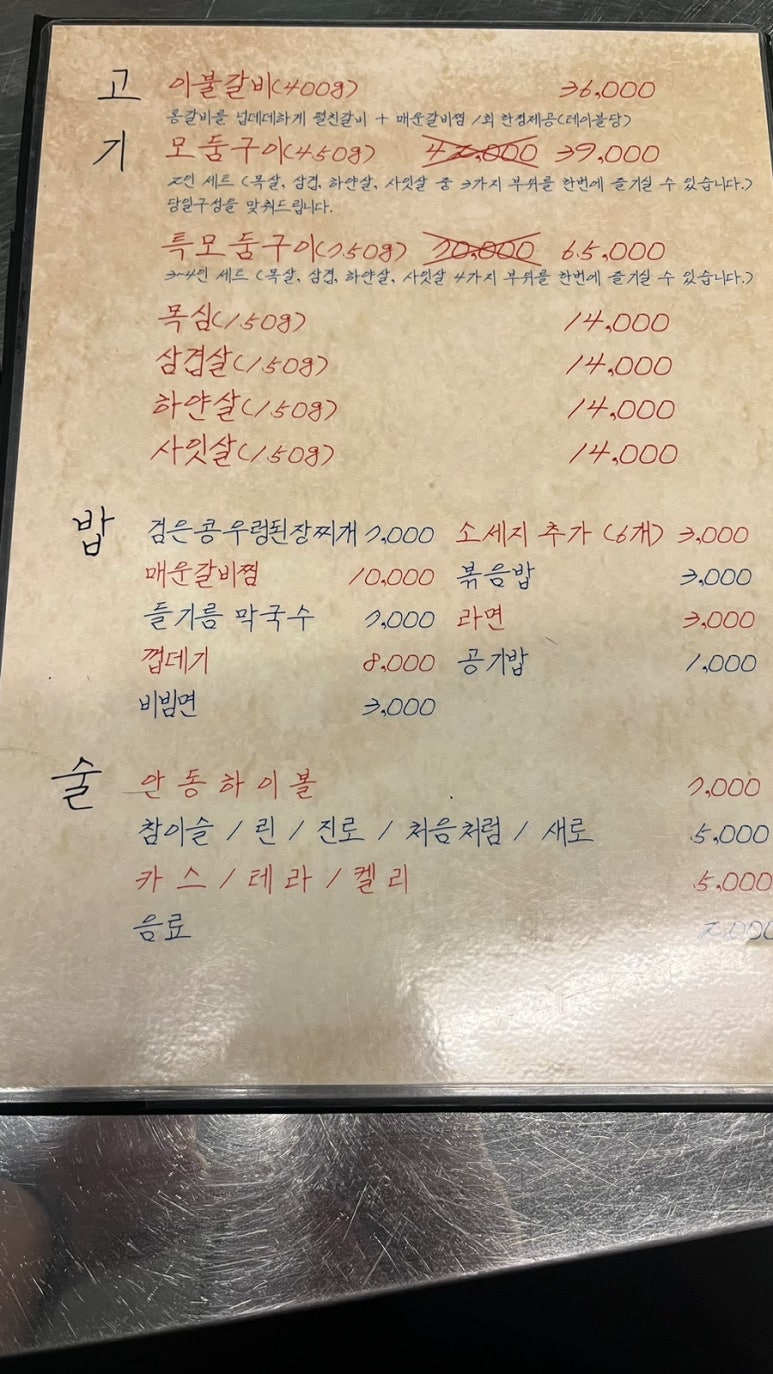 고기
이불갈비(400g) 36,000
통갈비를 넙데데하게 펼친갈비 + 매운갈비찜 1회 한정제공(테이블당)
모둠구이(450g) 42,000 39,000
2인 세트 (목살, 삼겹, 하얀살, 사잇살 중 3가지 부위를 한번에 즐기실 수 있습니다.)
당일구성을 맞춰드립니다.
특모둠구이(750g) 70,000 65,000
3~4인 세트 (목살, 삼겹, 하얀살, 사잇살 4가지 부위를 한번에 즐기실 수 있습니다.)
목심(150g) 14,000
삼겹살(150g) 14,000
하얀살(150g) 14,000
사잇살(150g) 14,000
밥
검은콩우렁된장찌개 7,000 소세지 추가 (6개) 3,000
매운갈비찜 10,000 볶음밥 3,000
들기름 막국수 7,000 라면 3,000
껍데기 8,000 공기밥 1,000
비빔면 3,000
술
안동하이볼 7,000
참이슬 / 린 / 진로 / 처음처럼 / 새로 5,000
카스 / 테라 / 켈리 5,000
음료 2,000